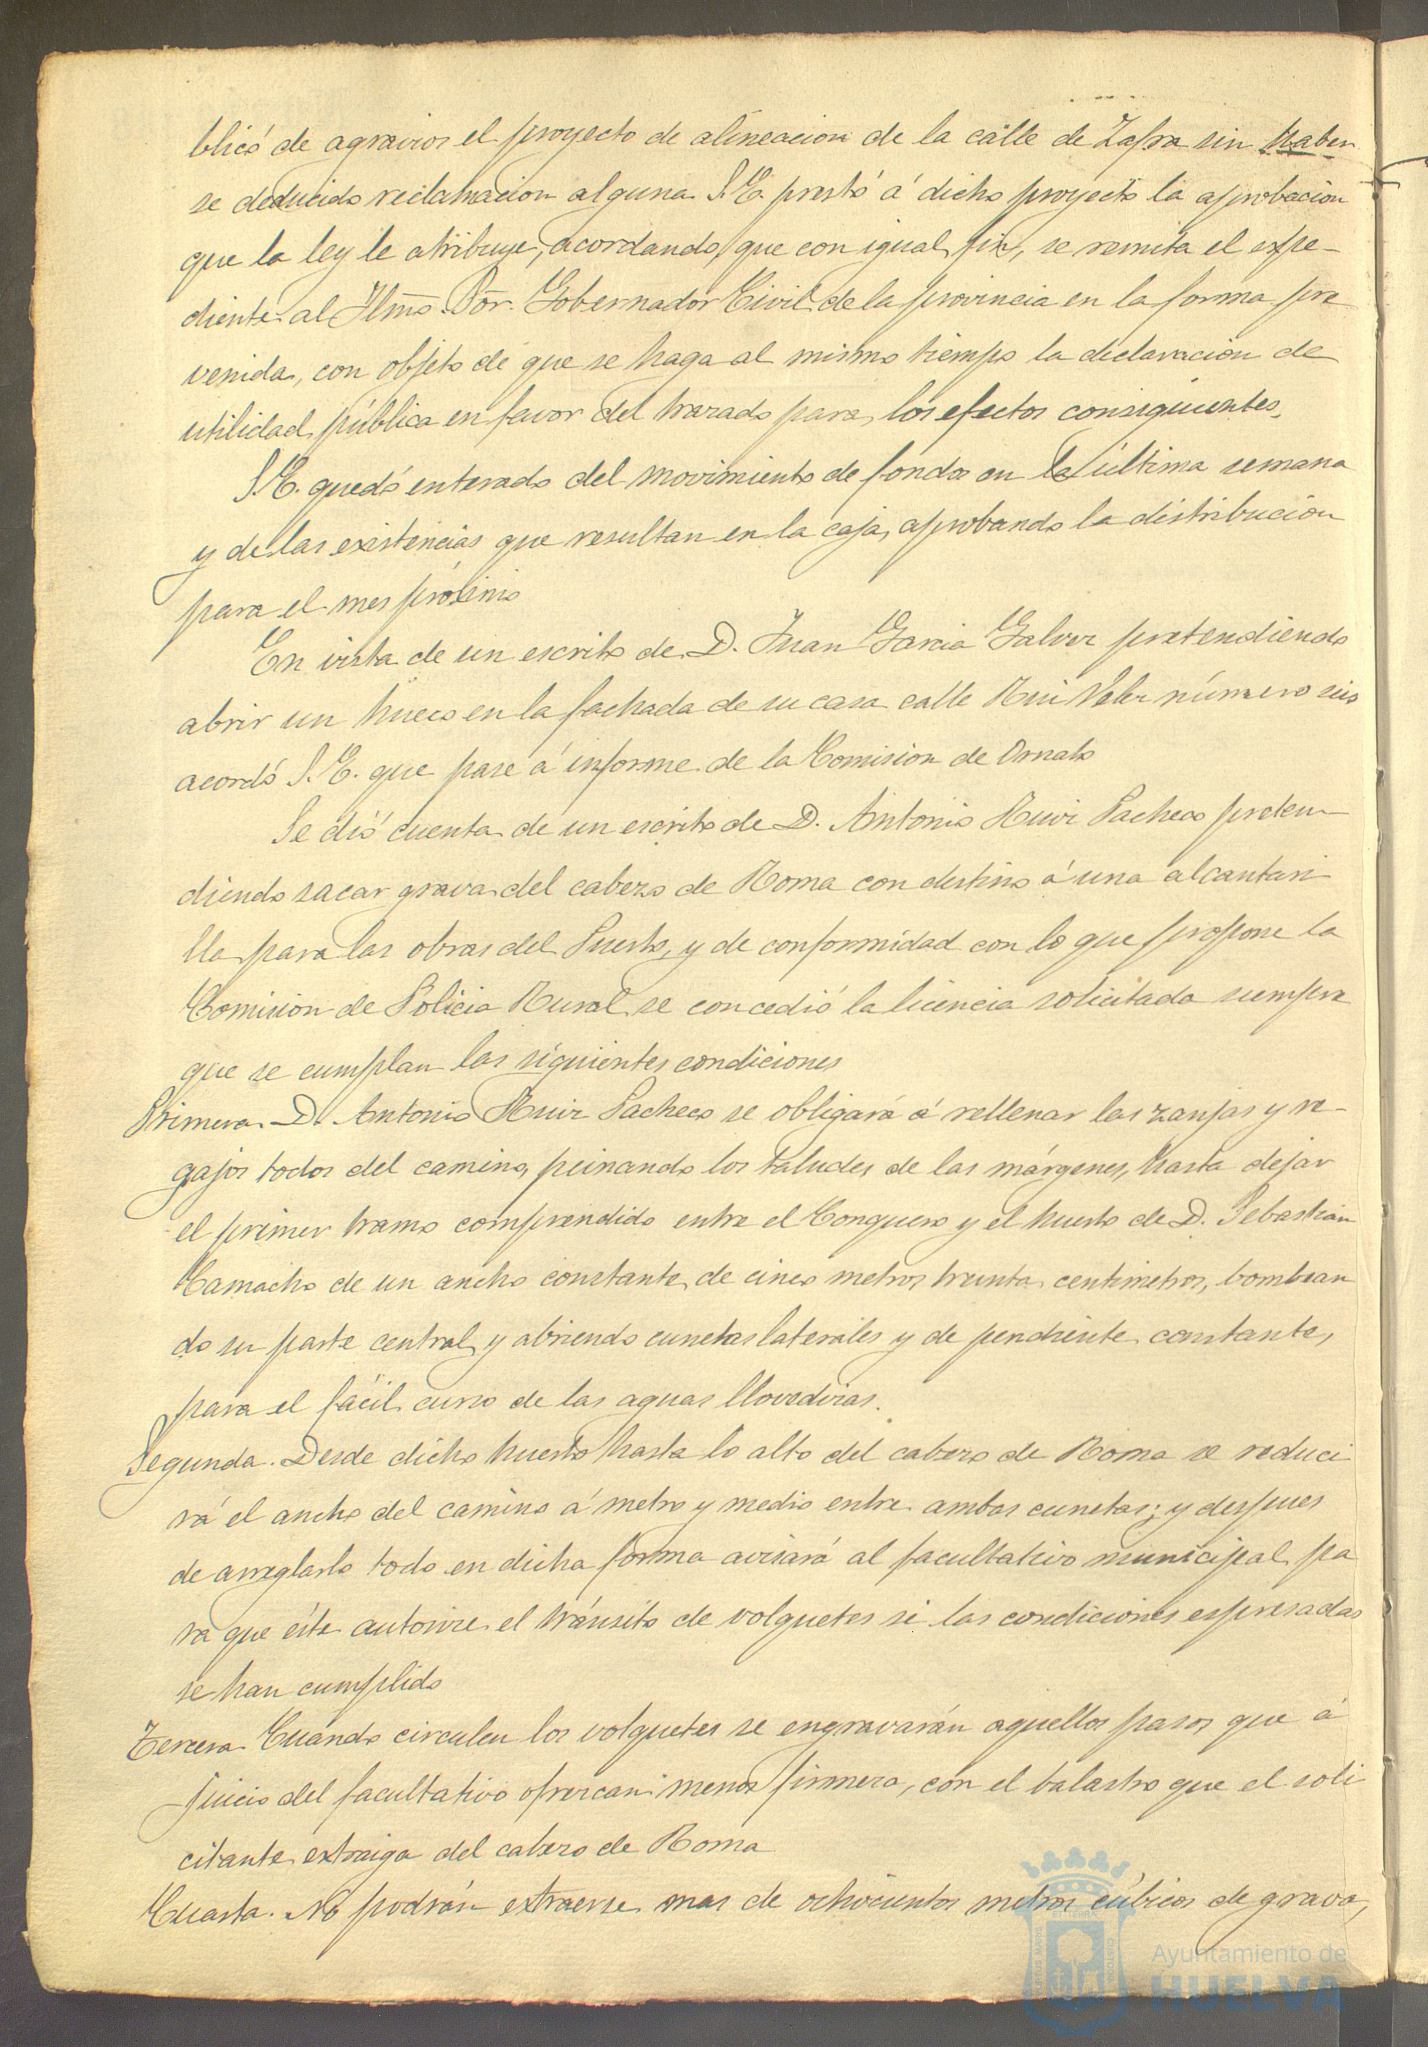 blicó de agravios el proyecto de alineacion de la calle de Zafra sin haber
se deducido reclamacion alguna S.E. prestó á dicho proyecto la aprobacion
que la ley le atribuye, acordando, que con igual fin, se remita el espe-
diente al Ilmo. Sor. Gobernador Civil de la provincia en la forma pre
venida, con objeto de que se haga al mismo tiempo la declaracion de
utilidad pública en favor del trazado para los efectos consiguientes.
S.E. quedó enterado del movimiento de fondos en la última semana
y de las existencias que resultan en la caja, aprobando la distribucion
para el mes próximo
En vista de un escrito de D. Juan Garcia Galvez pretendiendo
abrir un hueco en la fachada de su casa calle Rui Velez número seis
acordó S.E. que pase á informe de la Comision de Ornato
Se dió cuenta de un escrito de D. Antonio Ruiz Pacheco preten-
diendo sacar grava del cabezo de Roma con destino á una alcantari
lla para las obras del Puerto, y de conformidad con lo que propone la
Comision de Policia Rural se concedió la licencia solicitada siempre
que se cumplan las siguientes condiciones
Primera. D. Antonio Ruiz Pacheco se obligará á rellenar las zanjas y re-
gajos todos del camino, peinando los taludes de las márgenes, hasta dejar
el primer tramo comprendido entre el Conquero y el huerto de D. Sebastian
Camacho de un ancho constante de cinco metros treinta centimetros, bombean
do su parte central y abriendo cunetas laterales y de pendiente constante,
para el fácil curso de las aguas llovedizas.
Segunda. Desde dicho huerto hasta lo alto del cabezo de Roma se reduci
rá el ancho del camino á metro y medio entre ambas cunetas; y despues
de arreglarlo todo en dicha forma avisará al facultativo municipal pa
ra que éste autorize el tránsito de volquetes si las condiciones espresadas
se han cumplido
Tercera Cuando circulen los volquetes se engravarán aquellos pasos que á
juicio del facultativo ofrezcan menos firmeza, con el balastro que el soli
citante extraiga del cabezo de Roma
Cuarta. No podrán extraerse mas de ochocientos metros cúbicos de grava,
Ayuntamiento de
HUELVA